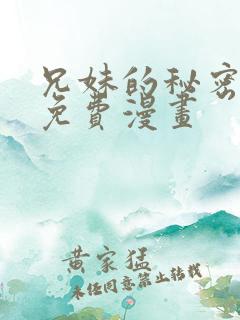 兄妹的秘密
免費漫畫
黄家猛
未经同意禁止转载